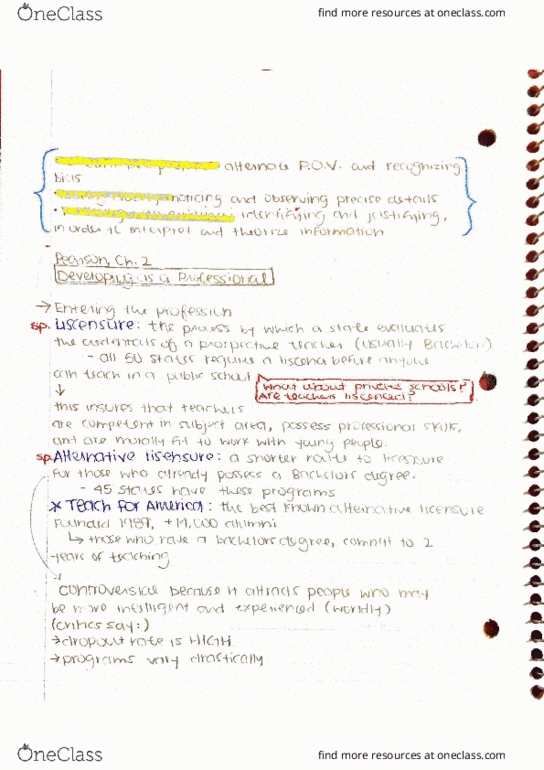 OneClass
find more resources at oneclass.com
alternate P.O.V. and recognizing
bias
noticing and observing precise details
identifying and justifying,
in order to interpret and theorize information
Pearson, Ch. 2
Developing as a Professional
→ Entering the profession
sp. Liscensure: the process by which a state evaluates
the credentials of a prospective teacher (usually Bachelor)
- all 50 states require a liscense before anyone
can teach in a public school
What about private schools?
Are teachers liscenced?
↓
this insures that teachers
are competent in subject area, possess professional skills,
and are morally fit to work with young people.
sp. Alternative lisensure: a shorter route to licensure
for those who already possess a Bachelors degree.
- 45 states have these programs
* Teach for America: the best known alternative licensure
Founded 1989, +14,000 alumni
↳ those who have a bachelors degree, commit to 2
years of teaching
controversial because it attracts people who may
be more intelligent and experienced (worldly)
(critics say:)
→ dropout rate is HIGH
→ programs vary drastically
OneClass
find more resources at oneclass.com